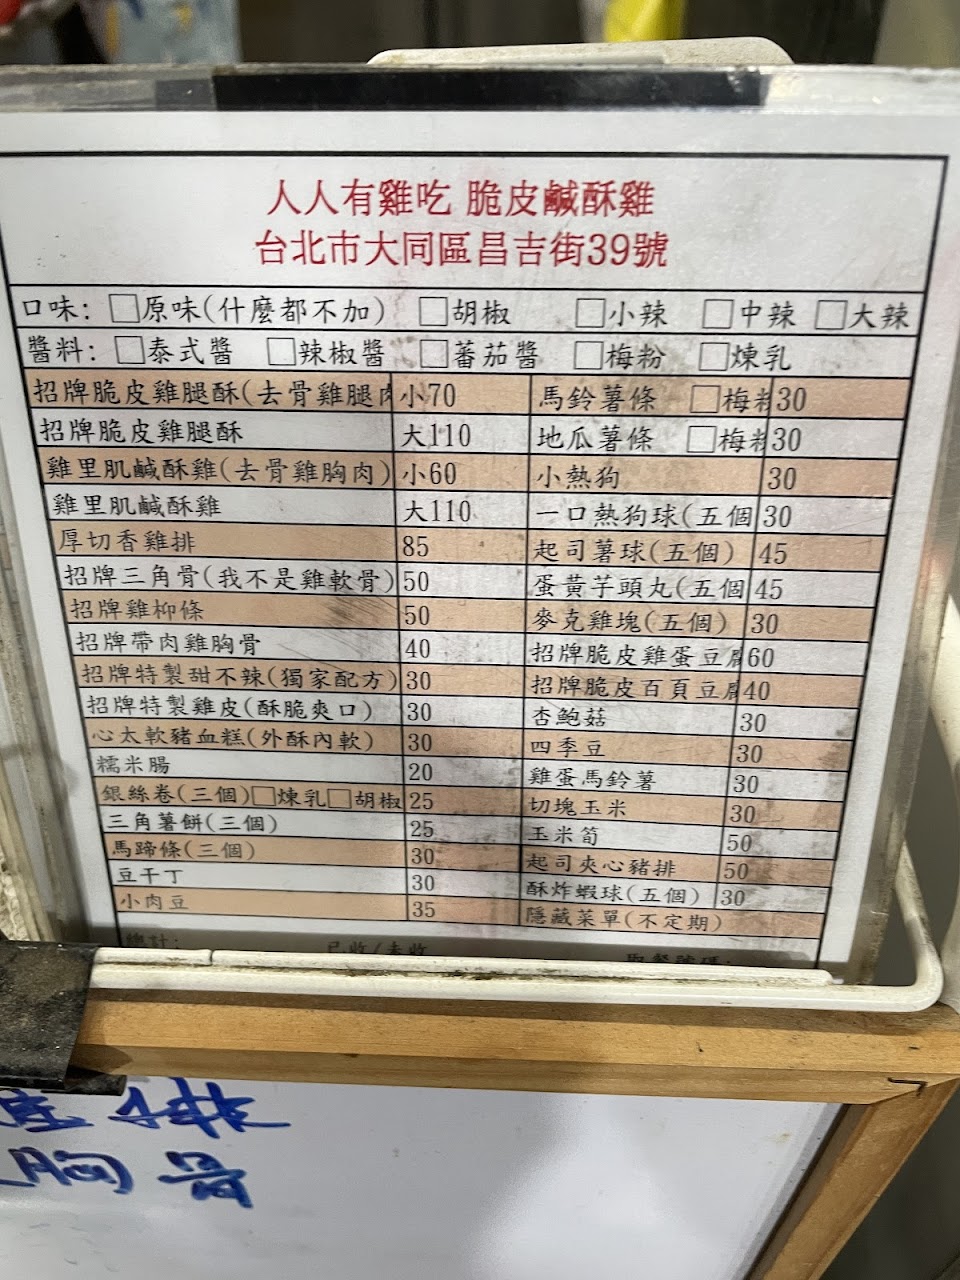 人人有雞吃 脆皮鹹酥雞
台北市大同區昌吉街39號
口味: □原味(什麼都不加) □胡椒 □小辣 □中辣 □大辣
醬料: □泰式醬 □辣椒醬 □蕃茄醬 □梅粉 □煉乳
招牌脆皮雞腿酥(去骨雞腿肉 小70 馬鈴薯條 □梅粉 30
招牌脆皮雞腿酥 大110 地瓜薯條 □梅粉 30
雞里肌鹹酥雞(去骨雞胸肉) 小60 小熱狗 30
雞里肌鹹酥雞 大110 一口熱狗球(五個 30
厚切香雞排 85 起司薯球(五個) 45
招牌三角骨(我不是雞軟骨) 50 蛋黃芋頭丸(五個 45
招牌雞柳條 50 麥克雞塊(五個) 30
招牌帶肉雞胸骨 40 招牌脆皮雞蛋豆腐 60
招牌特製甜不辣(獨家配方) 30 招牌脆皮百頁豆腐 40
招牌特製雞皮(酥脆爽口) 30 杏鮑菇 30
心太軟豬血糕(外酥內軟) 30 四季豆 30
糯米腸 20 雞蛋馬鈴薯 30
銀絲卷(三個)□煉乳□胡椒 25 切塊玉米 30
三角薯餅(三個) 25 玉米筍 50
馬蹄條(三個) 30 起司夾心豬排 50
豆干丁 30 酥炸蝦球(五個) 30
小肉豆 35 隱藏菜單(不定期)
總計: 已收/未收 取餐號碼:
排
胸骨